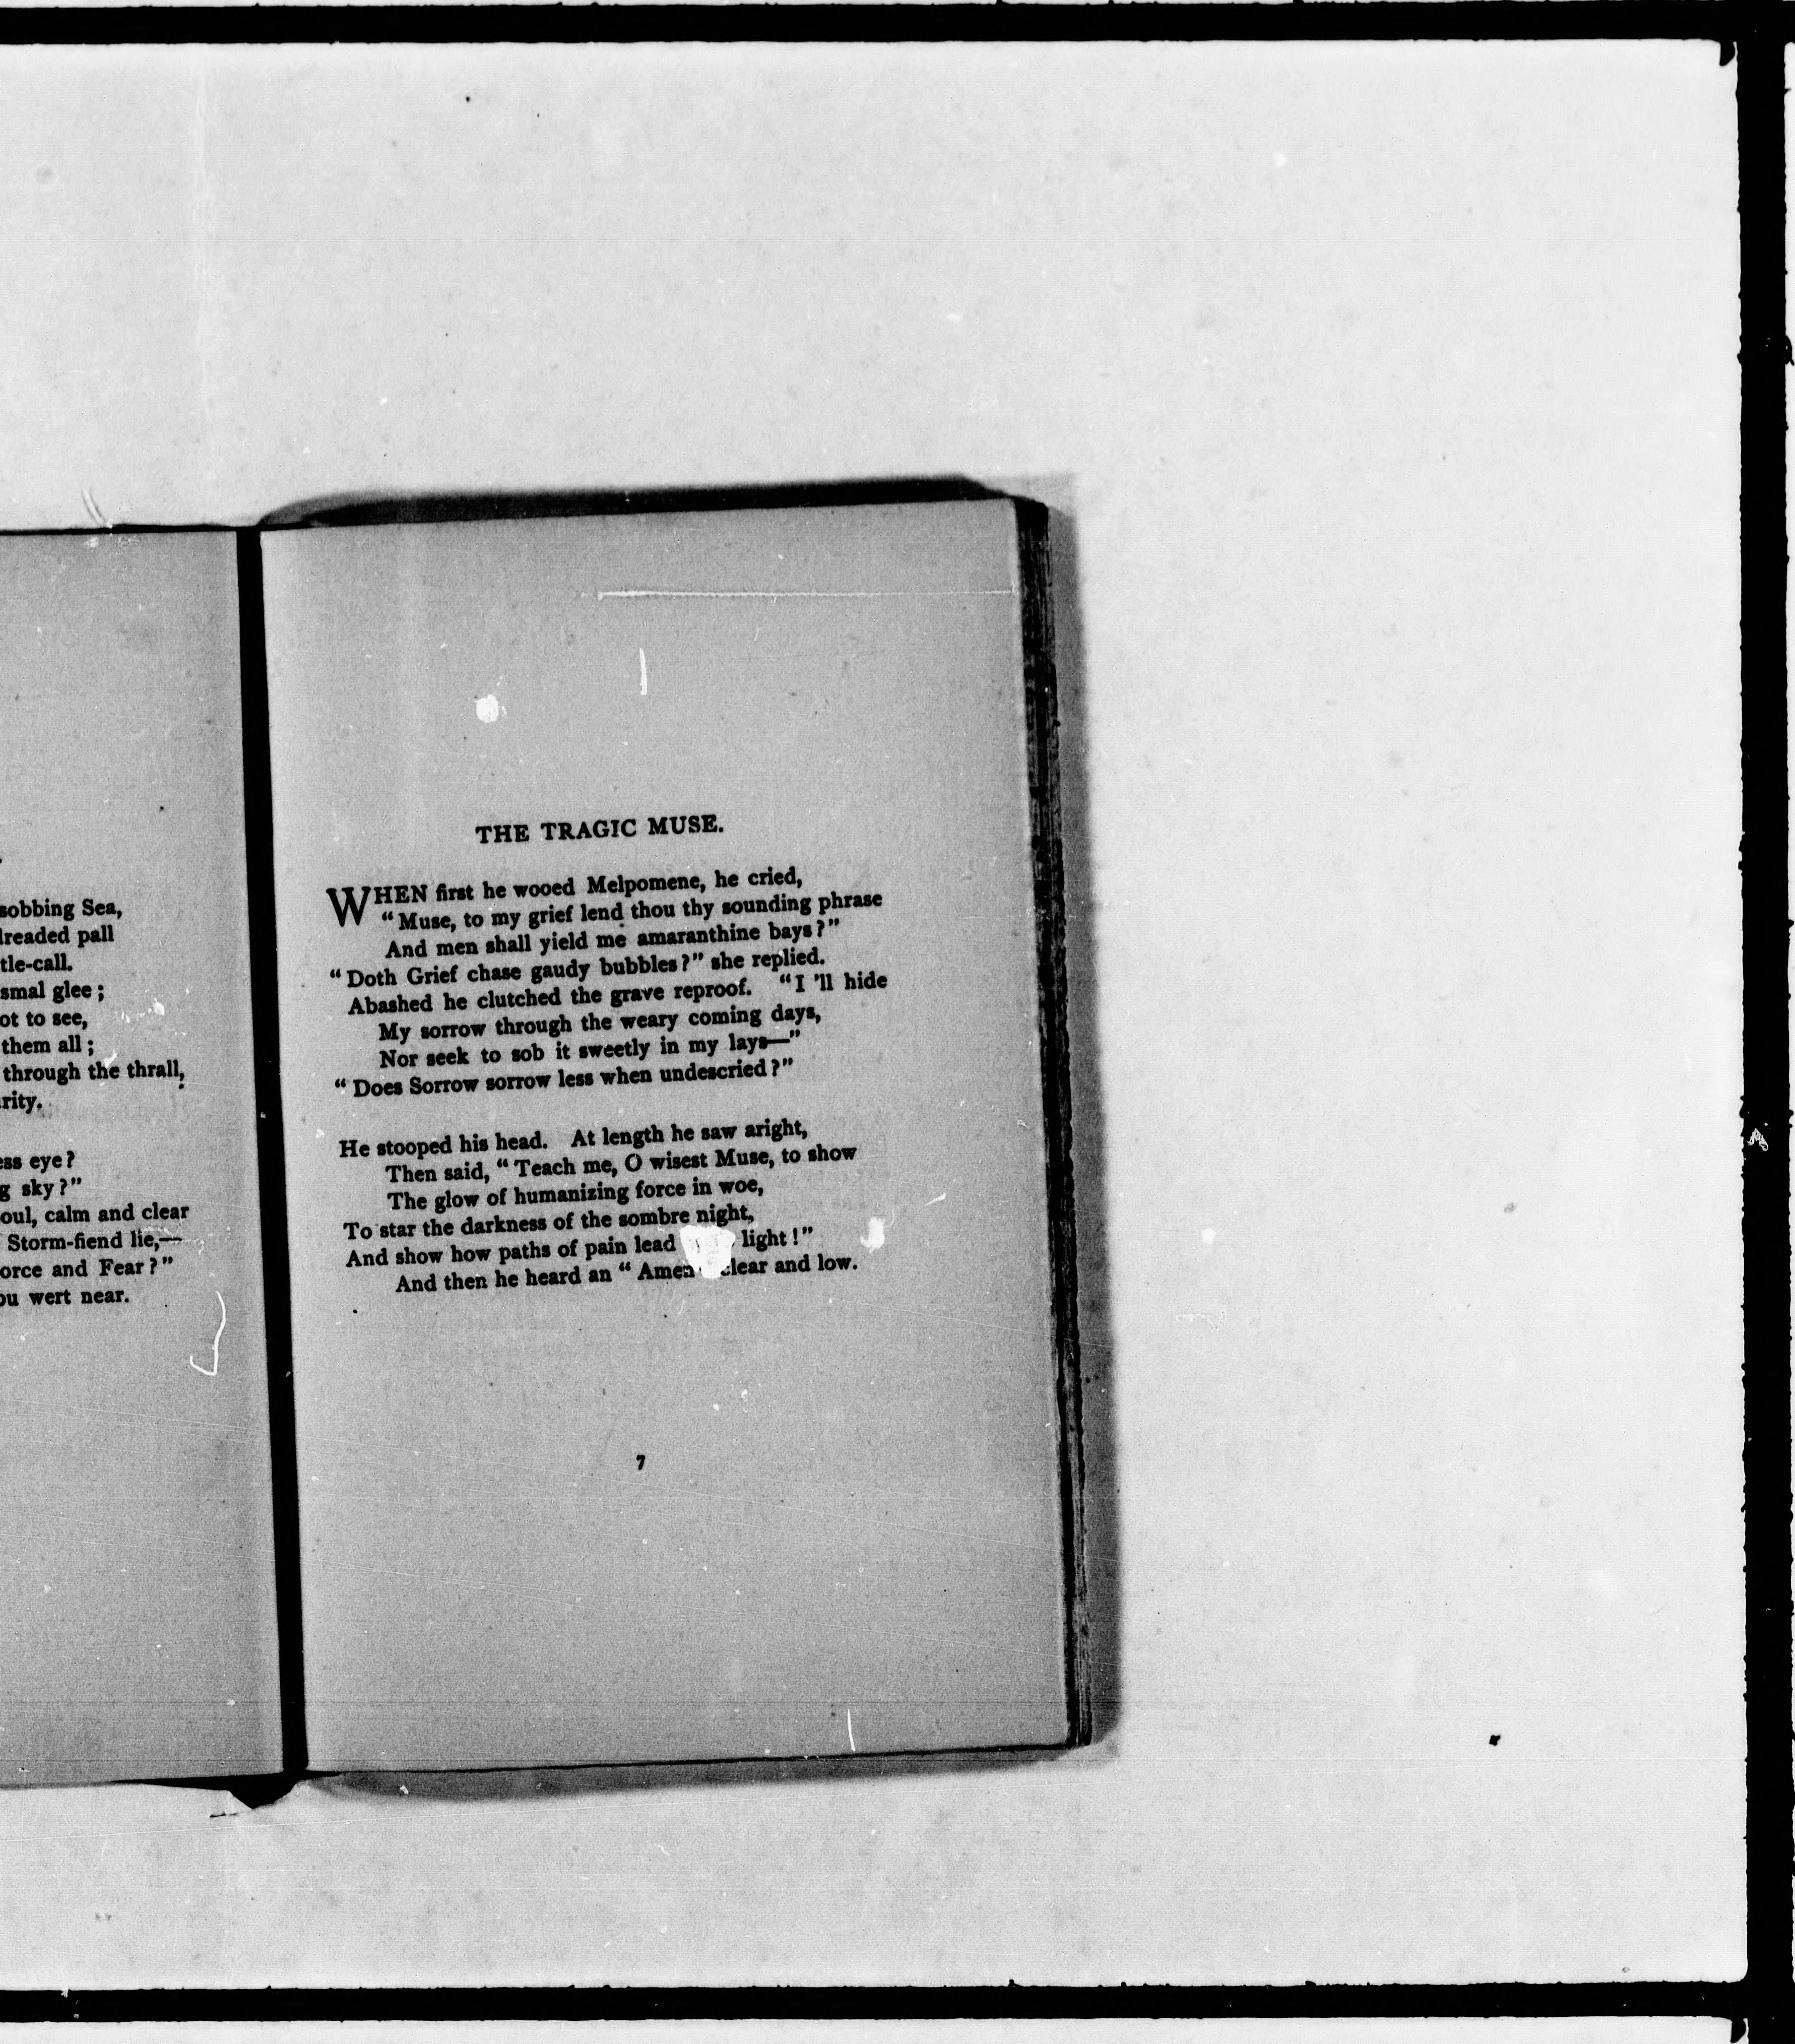 sobbing Sea,
dreaded pall
tle-call.
smal glee;
ot to see,
them all;
through the thrall,
rity.
ess eye?
g sky?"
oul, calm and clear
Storm-fiend lie,—
orce and Fear?"
ou wert near.
THE TRAGIC MUSE.
WHEN first he wooed Melpomene, he cried,
"Muse, to my grief lend thou thy sounding phrase
And men shall yield me amaranthine bays?"
"Doth Grief chase gaudy bubbles?" she replied.
Abashed he clutched the grave reproof. "I 'll hide
My sorrow through the weary coming days,
Nor seek to sob it sweetly in my lays—"
"Does Sorrow sorrow less when undescried?"
He stooped his head. At length he saw aright,
Then said, "Teach me, O wisest Muse, to show
The glow of humanizing force in woe,
To star the darkness of the sombre night,
And show how paths of pain lead light!"
And then he heard an "Amen clear and low.
7